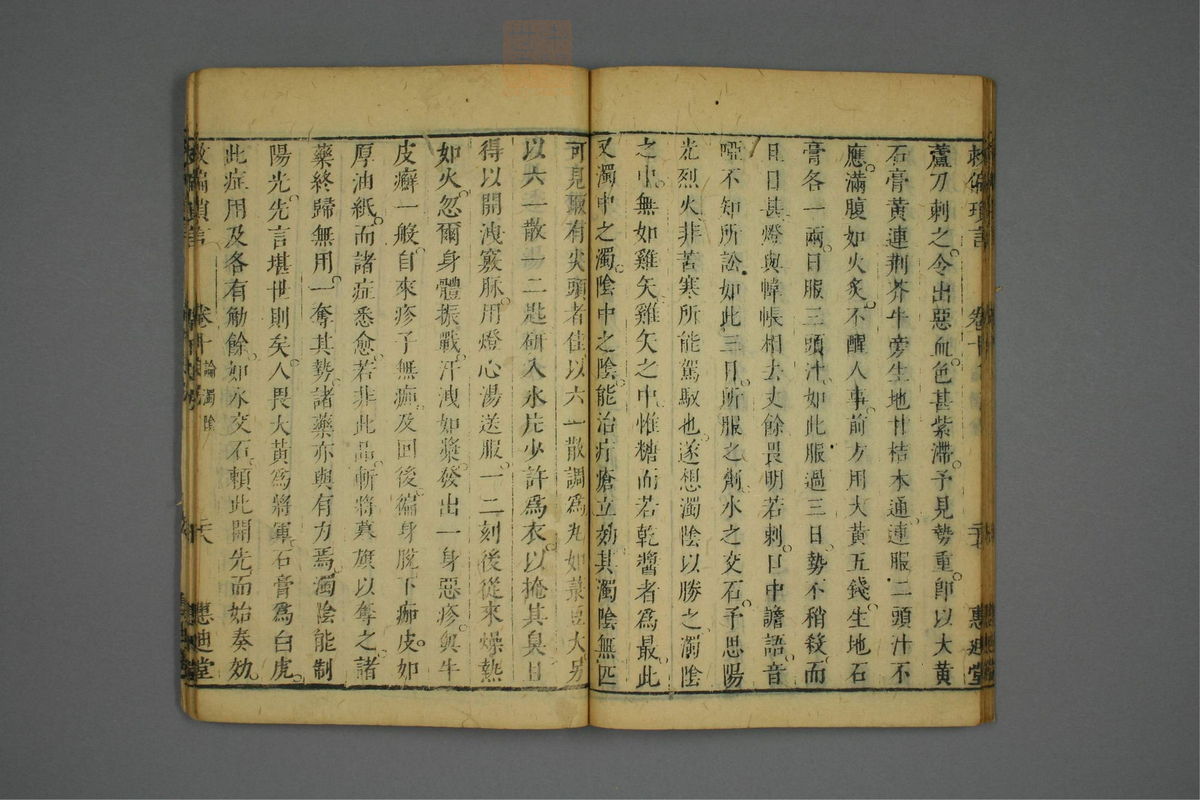 救偏瑣言 卷十 惠迪堂
蘆刀刺之令出惡血色甚紫滯予見勢重即以大黃
石膏黃連荆芥牛旁生地甘桔木通連服二頭汁不
應滿腹如火炙不醒人事前方用大黃五錢生地石
膏各一兩日服三頭汁如此服過三日勢不稍殺而
且日甚燈與幃帳相去丈餘畏明若刺口中譫語音
啞不知所訟如此三日所服之劑水之交石予思陽
光烈火非苦寒所能駕馭也遂想濁陰以勝之濁陰
之中無如雞矢雞矢之中惟糖而若乾醬者為最此
又濁中之濁陰中之陰能治疔瘡立効其濁陰無匹
可見取有尖頭者佳以六一散調為丸如菉豆大另
以六一散一二匙研入氷片少許為衣以掩其臭目
得以開洩竅脉用燈心湯送服一二刻後從來燥熱
如火忽爾身體振戰汗洩如漿發出一身惡疹與牛
皮癬一般自來疹子無痂及回後徧身脫下痂皮如
厚油紙而諸症悉愈若非此品斬將搴旗以奪之諸
藥終歸無用一奪其勢諸藥亦與有力焉濁陰能制
陽光先言堪世則矣人畏大黃為將軍石膏為白虎
此症用及各有勣餘如水交石賴此開先而始奏効
救偏瑣言 卷十 論濁陰 惠迪堂